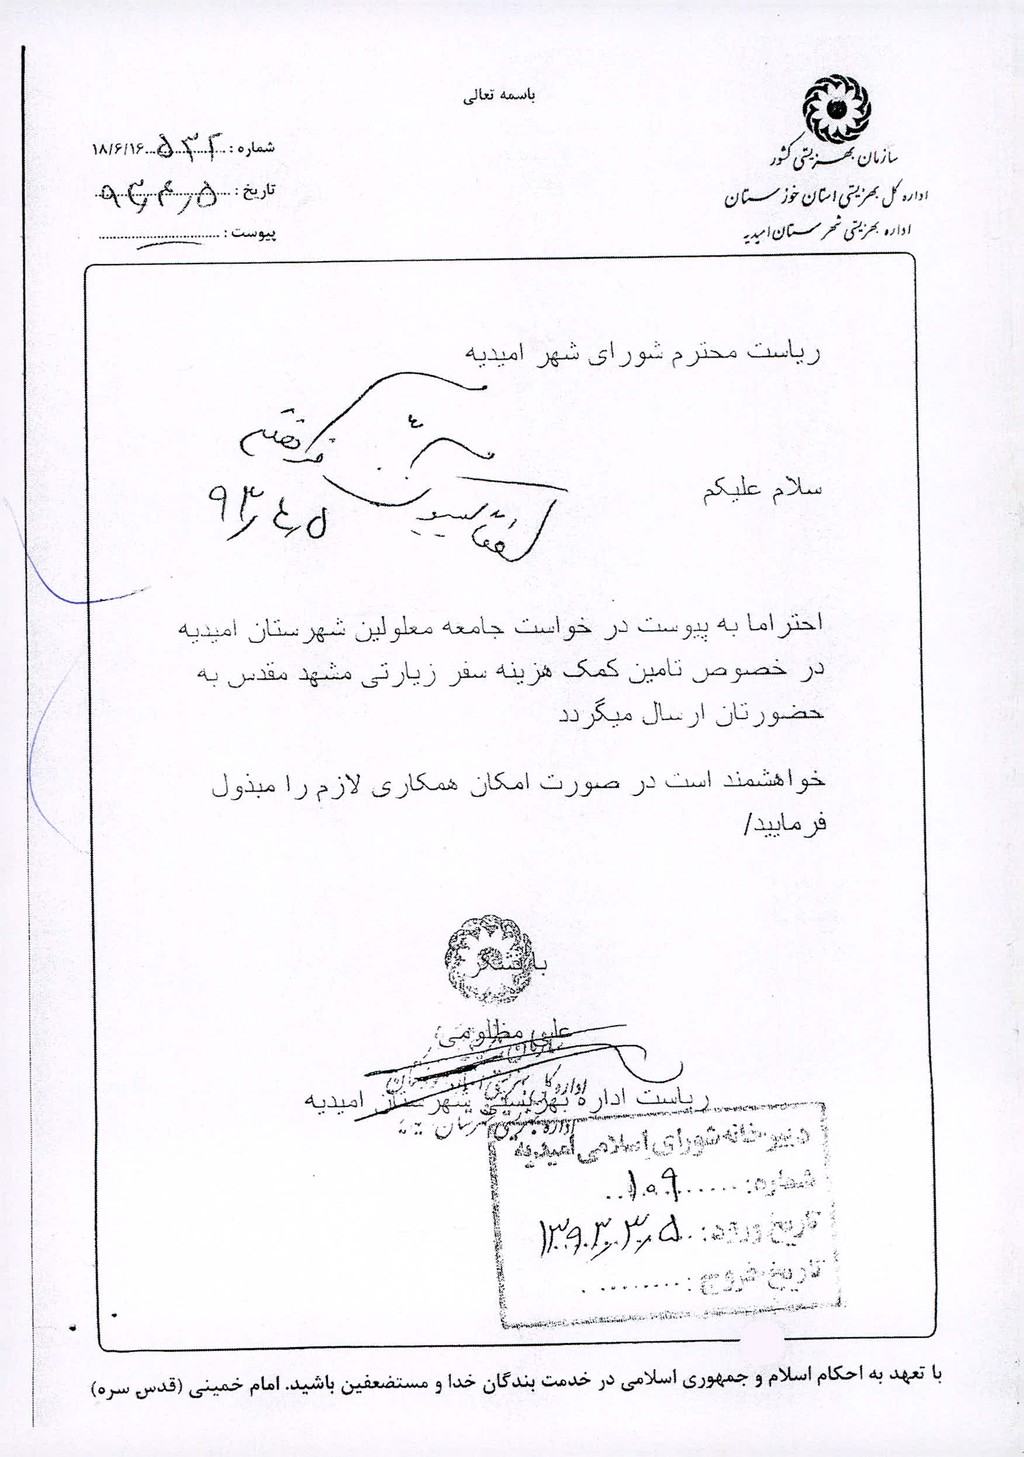 باسمه تعالی
سازمان بهزیستی کشور
اداره کل بهزیستی استان خوزستان
اداره بهزیستی شهرستان امیدیه
شماره : ۵۳۲ ۱۸/۶/۱۶
تاریخ : ۹۳/۴/۵
پیوست :
ریاست محترم شورای شهر امیدیه
سلام علیکم
۹۳/۴/۵
احتراما به پیوست در خواست جامعه معلولین شهرستان امیدیه
در خصوص تامین کمک هزینه سفر زیارتی مشهد مقدس به
حضورتان ارسال میگردد
خواهشمند است در صورت امکان همکاری لازم را مبذول
فرمایید/
با تشکر
علی مظلومی
ریاست اداره بهزیستی شهرستان امیدیه
اداره بهزیستی شهرستان امیدیه
دبیرخانه شورای اسلامی امیدیه
شماره: ۱۰۹
تاریخ ورود: ۱۳۹۳/۳/۵
تاریخ خروج:
با تعهد به احکام اسلام و جمهوری اسلامی در خدمت بندگان خدا و مستضعفین باشید. امام خمینی (قدس سره)